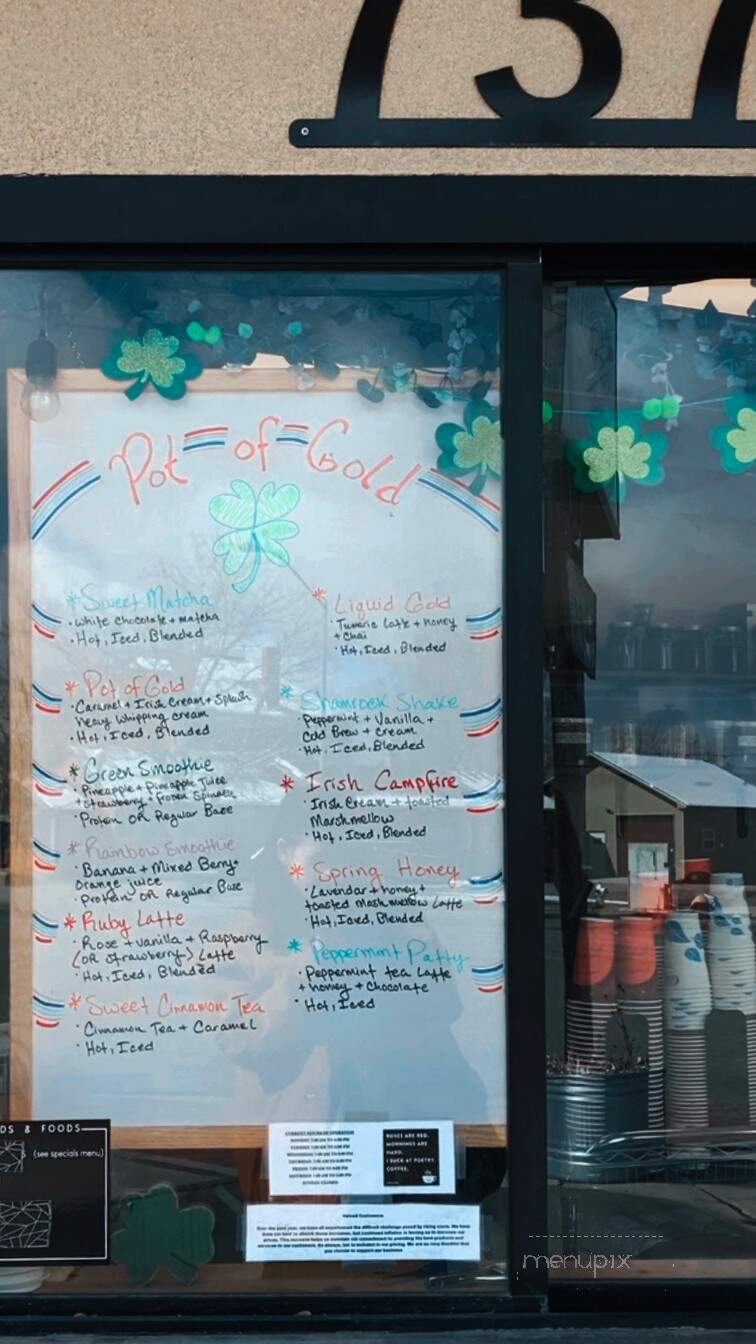 737
Pot of Gold
*Sweet Matcha
• White chocolate + matcha
• Hot, Iced, Blended
*Pot of Gold
• Caramel + Irish Cream + Splash
heavy whipping cream
• Hot, Iced, Blended
*Green Smoothie
• Pineapple + Pineapple Juice
+ Strawberry + Frozen Spinach
• Protein OR Regular Base
*Rainbow Smoothie
• Banana + Mixed Berry +
orange juice
• Protein OR Regular Base
*Ruby Latte
• Rose + Vanilla + Raspberry
(OR Strawberry) Latte
• Hot, Iced, Blended
*Sweet Cinnamon Tea
• Cinnamon Tea + Caramel
• Hot, Iced
*Liquid Gold
• Tumeric Latte + honey
+ Chai
• Hot, Iced, Blended
*Shamrock Shake
• Peppermint + Vanilla +
Cold Brew + cream
• Hot, Iced, Blended
*Irish Campfire
• Irish Cream + toasted
Marshmellow
• Hot, Iced, Blended
*Spring Honey
• Lavendar + honey +
toasted Mashmellow Latte
• Hot, Iced, Blended
*Peppermint Patty
• Peppermint tea Latte
+ honey + Chocolate
• Hot, Iced
DS & FOODS
(see specials menu)
CURRENT HOURS OF OPERATION
SUNDAY CLOSED
ROSES ARE RED.
MORNINGS ARE
HARD.
I SUCK AT POETRY.
COFFEE.
Valued Customers
menupix